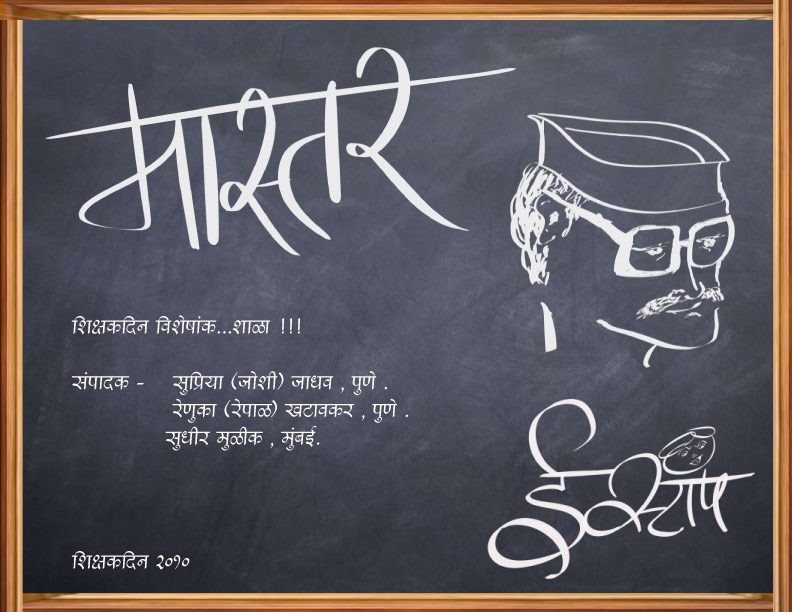 मास्तर
शिक्षकदिन विशेषांक...शाळा !!!
संपादक - सुप्रिया (जोशी) जाधव , पुणे .
रेणुका (रेपाळ) खटावकर , पुणे .
सुधीर मुळीक , मुंबई.
ईस्टाप
शिक्षकदिन २०१०